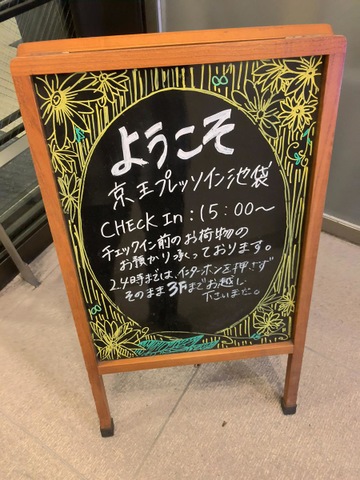 ようこそ
京王プレッソイン池袋
CHECK In : 15:00〜
チェックイン前のお荷物の
お預かり承っております。
24時までは、インターホンを押さず
そのまま3Fまでお越し
下さいませ。